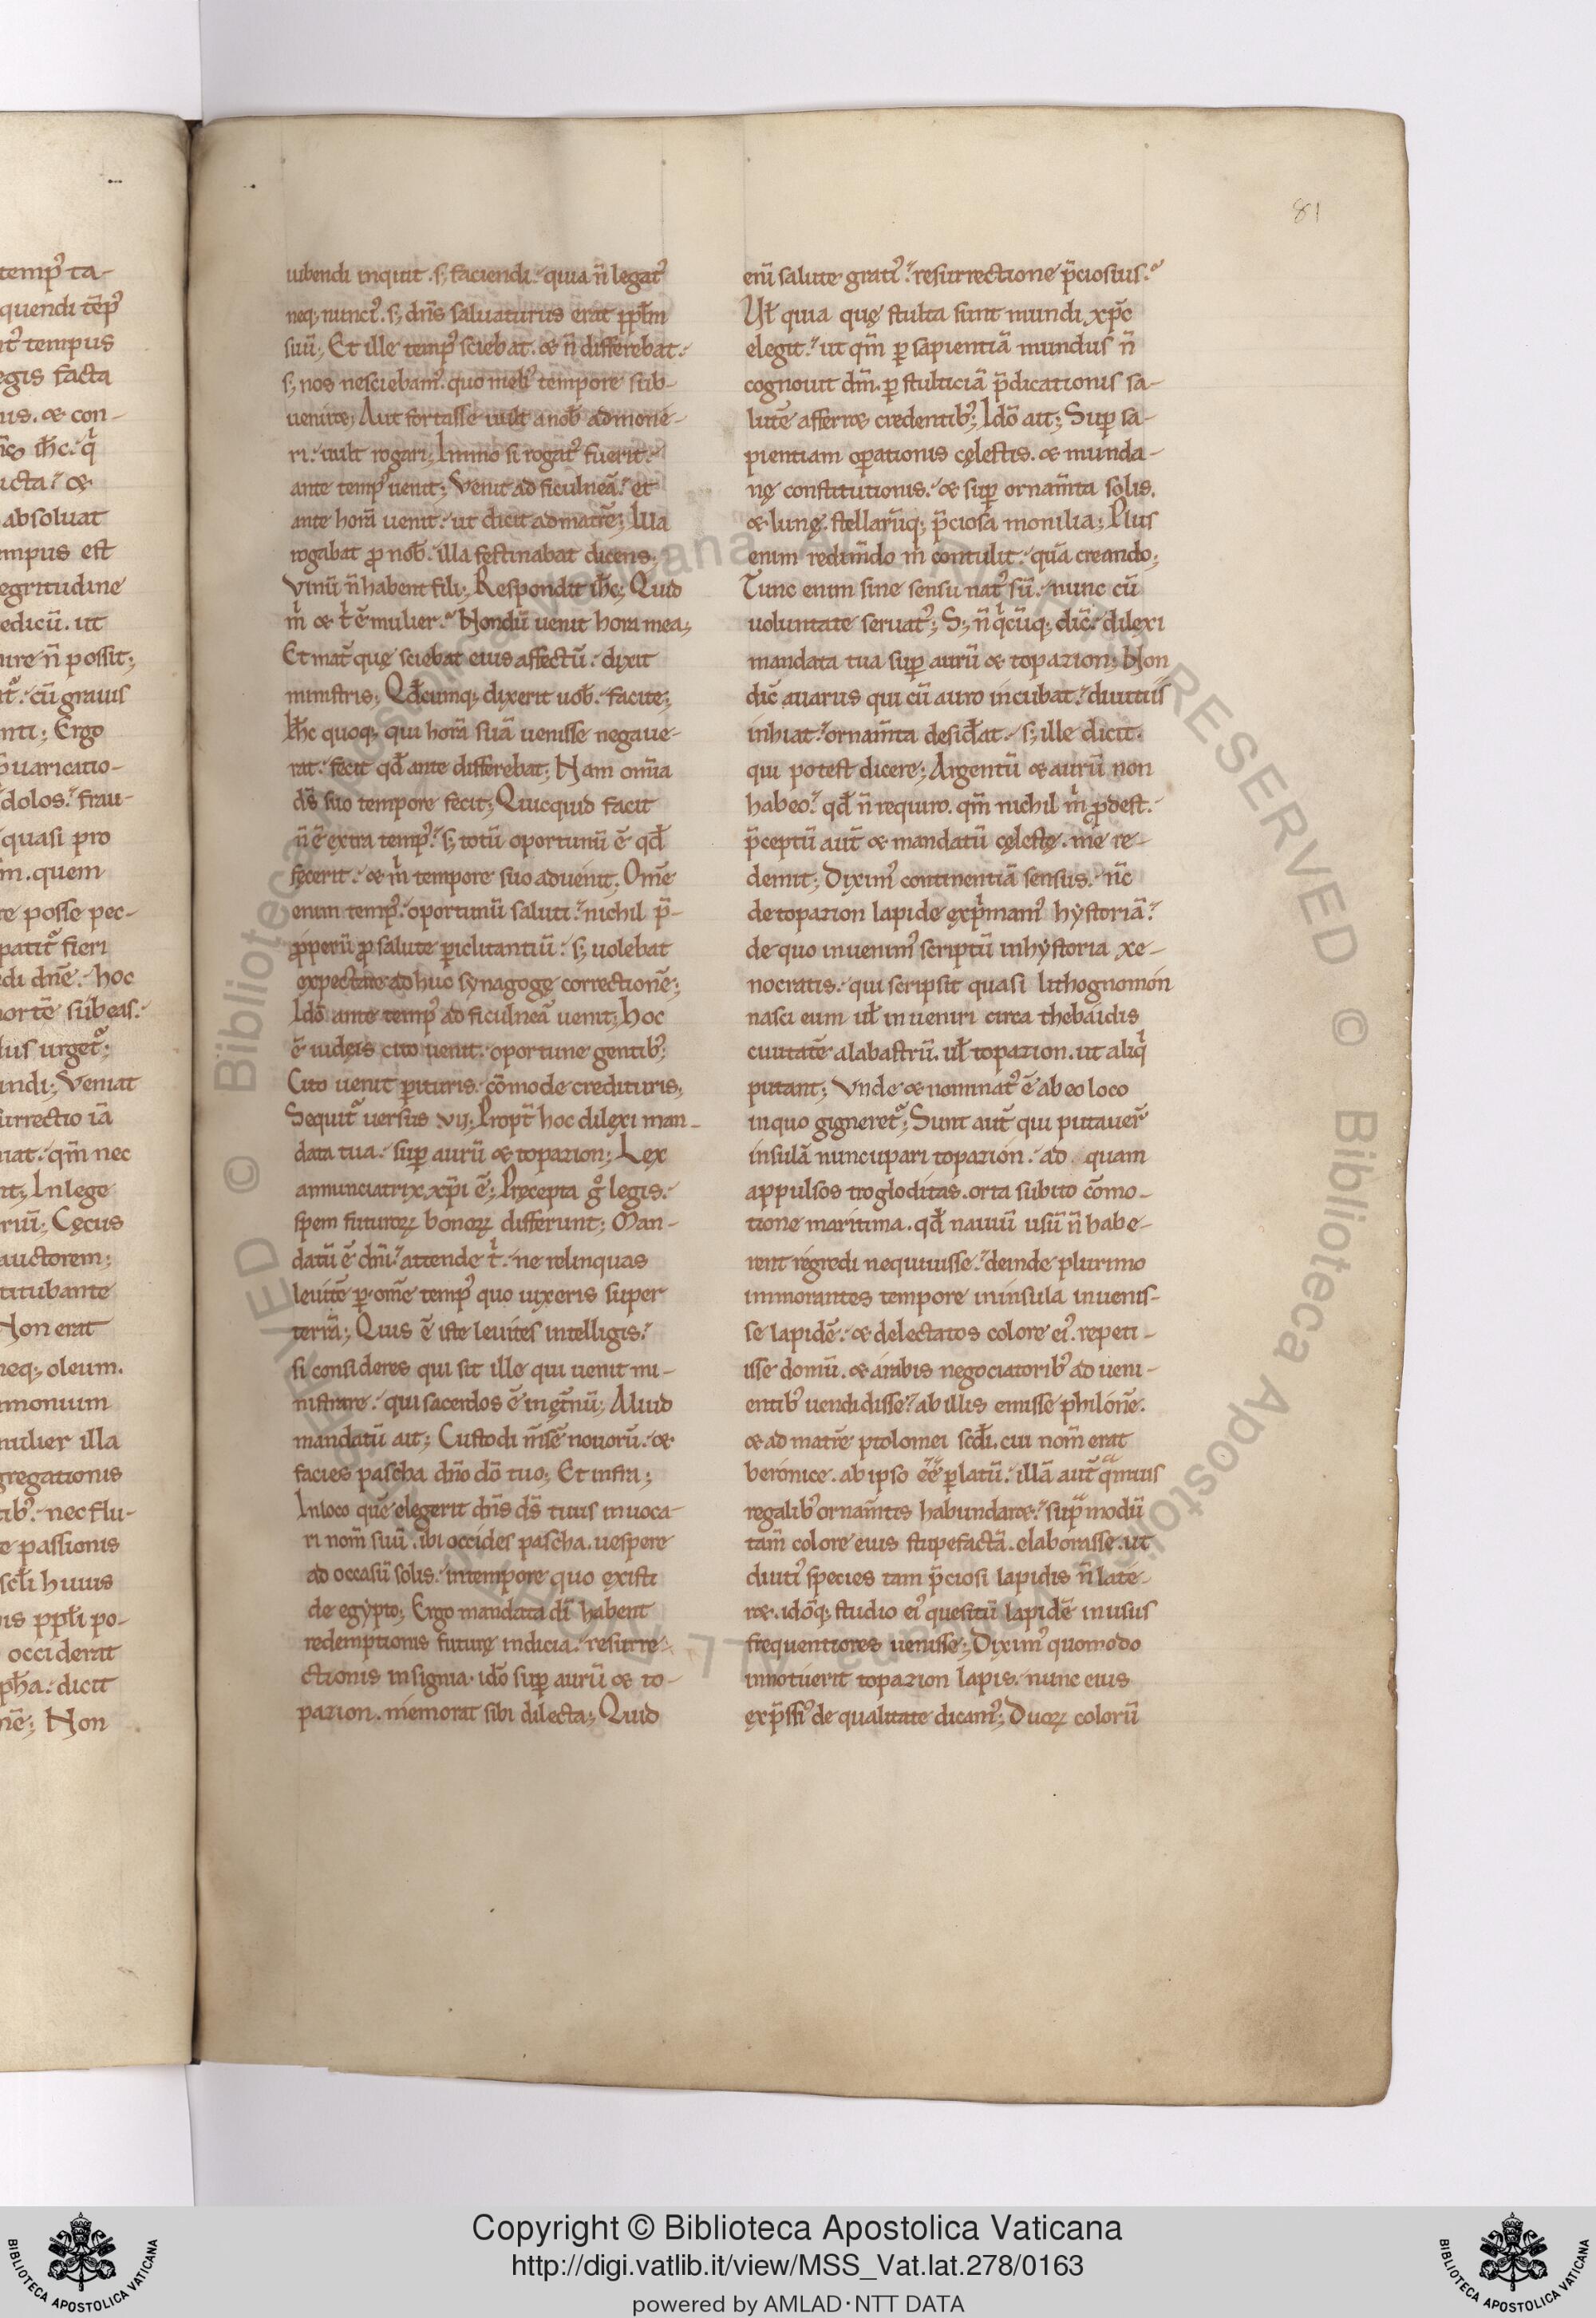 temp᾽ ta-
quendi tēp᾽
tempus
egis facta
us. & con-
absoluat
empus est
egritudine
edicū. ut
ure ñ possit;
cū grauis
nti; Ergo
uaricatio-
dolos. frau-
quasi pro
m. quem
te posse pec-
patit᾽ fieri
di dñe. hoc
ortē subeas.
lus urget᾽;
undi; Veniat
urrectio iā
iat. qm̄ nec
nt; In lege
riū; Cęcus
auctorem;
titubante
Non erat
neq; oleum.
imonium
mulier illa
gregationis
tib᾽. nec flu-
e passionis
scłi huius
is ppłi po-
occiderat
pħa. dicit
mē; Non
81
iubendi inquit. s; faciendi. quia ñ legat᾽
neq; nunci᾽. s; dñs saluaturus erat ppłm
suū; Et ille temp᾽ sciebat. & ñ differebat.
s; nos nesciebam᾽. quo meli᾽ tempore sub-
uenire; Aut fortasse uult a nob̄ admone-
ri. uult rogari; Immo si rogat᾽ fuerit.
ante temp᾽ uenit; Venit ad ficulneā. et
ante horā uenit. ut dicit ad matrē; Illa
rogabat p nob̄. illa festinabat dicens;
Vinū ñ habent fili; Respondit iħc; Quid
m̊ & t̊ ē mulier. Nondū uenit hora mea;
Et mat̄ quę sciebat eius affectū. dixit
ministris; Qđcumq; dixerit uob̄. facite;
Iħc quoq; qui horā suā uenisse negaue-
rat. fecit qđ ante differebat; Nam omīa
d̄s suo tempore fecit; Quicquid facit
ñ ē extra temp᾽. s; totū oportunū ē qđ
fecerit. & m̊ tempore suo aduenit. Om̄e
enim temp᾽. oportunū saluti. nichil p̄-
pperū p salute piclitantiū. s; uolebat
expectare ad huc synagogę correctionē;
Idō ante temp᾽ ad ficulneā uenit; Hoc
ē iudęis cito uenit. oportune gentib᾽;
Cito uenit pituris. cōmode credituris;
Sequit᾽ uersus .vij; Propt̄ hoc dilexi man-
data tua. sup aurū & topazion; Lex
annunciatrix xp̄i ē; Pręcepta g̊ legis.
spem futuroꝝ bonoꝝ differunt; Man-
datū ē dn̄i. attende t̊. ne relinquas
leuitē p om̄e temp᾽ quo uixeris super
terrā; Quis ē iste leuites intelligis.
si consideres qui sit ille qui uenit mi-
nistrare. qui sacerdos ē in ęt̄nū; Aliud
mandatū ait; Custodi m̄sē nouorū. &
facies pascha dn̄o dō tuo; Et infra;
In loco quē elegerit dn̄s d̄s tuus inuoca-
ri nom̄ suū. ibi occides pascha. uespere
ad occasū solis. in tempore quo existi
de egypto; Ergo mandata dī habent
redemptionis futurę indicia. resurre-
ctionis insignia. idō sup aurū & to-
pazion. memorat sibi dilecta; Quid
enī salute grati᾽. resurrectione p̄ciosius.
Uł quia quę stulta sunt mundi xp̄c
elegit. ut qm̄ p sapientiā mundus ñ
cognouit dm̄. p stulticiā p̄dicationis sa-
lutē afferr& credentib᾽; Idō ait; Sup sa-
pientiam opationis cęlestis. & munda-
nę constitutionis. & sup ornam̄ta solis.
& lunę. stellarūq; p̄ciosa monilia; Plus
enim redimēdo m̊ contulit. quā creando;
Tunc enim sine sensu nat᾽ sū. nunc cū
uoluntate seruat᾽; S; ñ q̊cūq; dic̄. dilexi
mandata tua sup aurū & topazion; Non
dic̄ auarus qui cū auro incubat. diuitiis
inhiat. ornam̄ta desiđat. s; ille dicit.
qui potest dicere; Argentū & aurū non
habeo. qđ ñ requiro. qm̄ nichil m̊ pdest.
p̄ceptū aut̄ & mandatū cęlestę. me re-
demit; Dixim᾽ continentiā sensus. nc̄
de topazion lapide exp̊mam᾽ hystoriā.
de quo inuenim᾽ scriptū in hystoria xe-
nocratis. qui scripsit quasi lithognomon
nasci eum uł inueniri circa thebaidis
ciuitatē alabastrū. uł topazion. ut aliq̊
putant; Vnde & nominat᾽ ē ab eo loco
in quo gigneret᾽; Sunt aut̄ qui putauer̄
insulā nuncupari topazion. ad quam
appulsos trogloditas. orta subito cōmo-
tione maritima. qđ nauiū usū ñ habe-
rent regredi nequiuisse. deinde plurimo
immorantes tempore in insula inuenis-
se lapidē. & delectatos colore ei᾽. repeti-
isse domū. & arabis negociatorib᾽ adueni-
entib᾽ uendidisse. ab illis emisse philonē.
& ad matrē ptolomei scđi. cui nom̄ erat
beronice. ab ipso ēē platū. illā aut̄ q̄muis
regalib᾽ ornam̄tis habundar&. sup̄ modū
tam̄ colore eius stupefactā. elaborasse. ut
diuti᾽ species tam p̄ciosi lapidis ñ late-
r&. idōq; studio ei᾽ quesitū lapidē in usus
frequentiores uenisse; Dixim᾽ quomodo
innotuerit topazion lapis. nunc eius
exp̄ssi᾽ de qualitate dicam᾽; Duoꝝ colorū
© Biblioteca Apostolica Vaticana ALL RIGHTS RESERVED
© Biblioteca Apostolica Vaticana ALL RIGHTS RESERVED
Copyright © Biblioteca Apostolica Vaticana
http://digi.vatlib.it/view/MSS_Vat.lat.278/0163
powered by AMLAD·NTT DATA
BIBLIOTECA APOSTOLICA VATICANA
BIBLIOTECA APOSTOLICA VATICANA